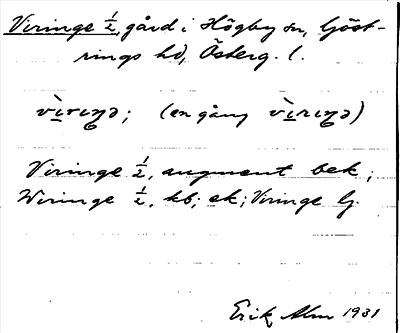 Viringe ½, gård i Högby sn, Göst-
rings hd, Österg. l.
vìrìŋə; (en gång vìrıŋə)
Viringe ½, augment bek;
Wiringe ½, kb; ek; Viringe G.
Erik Alm 1931